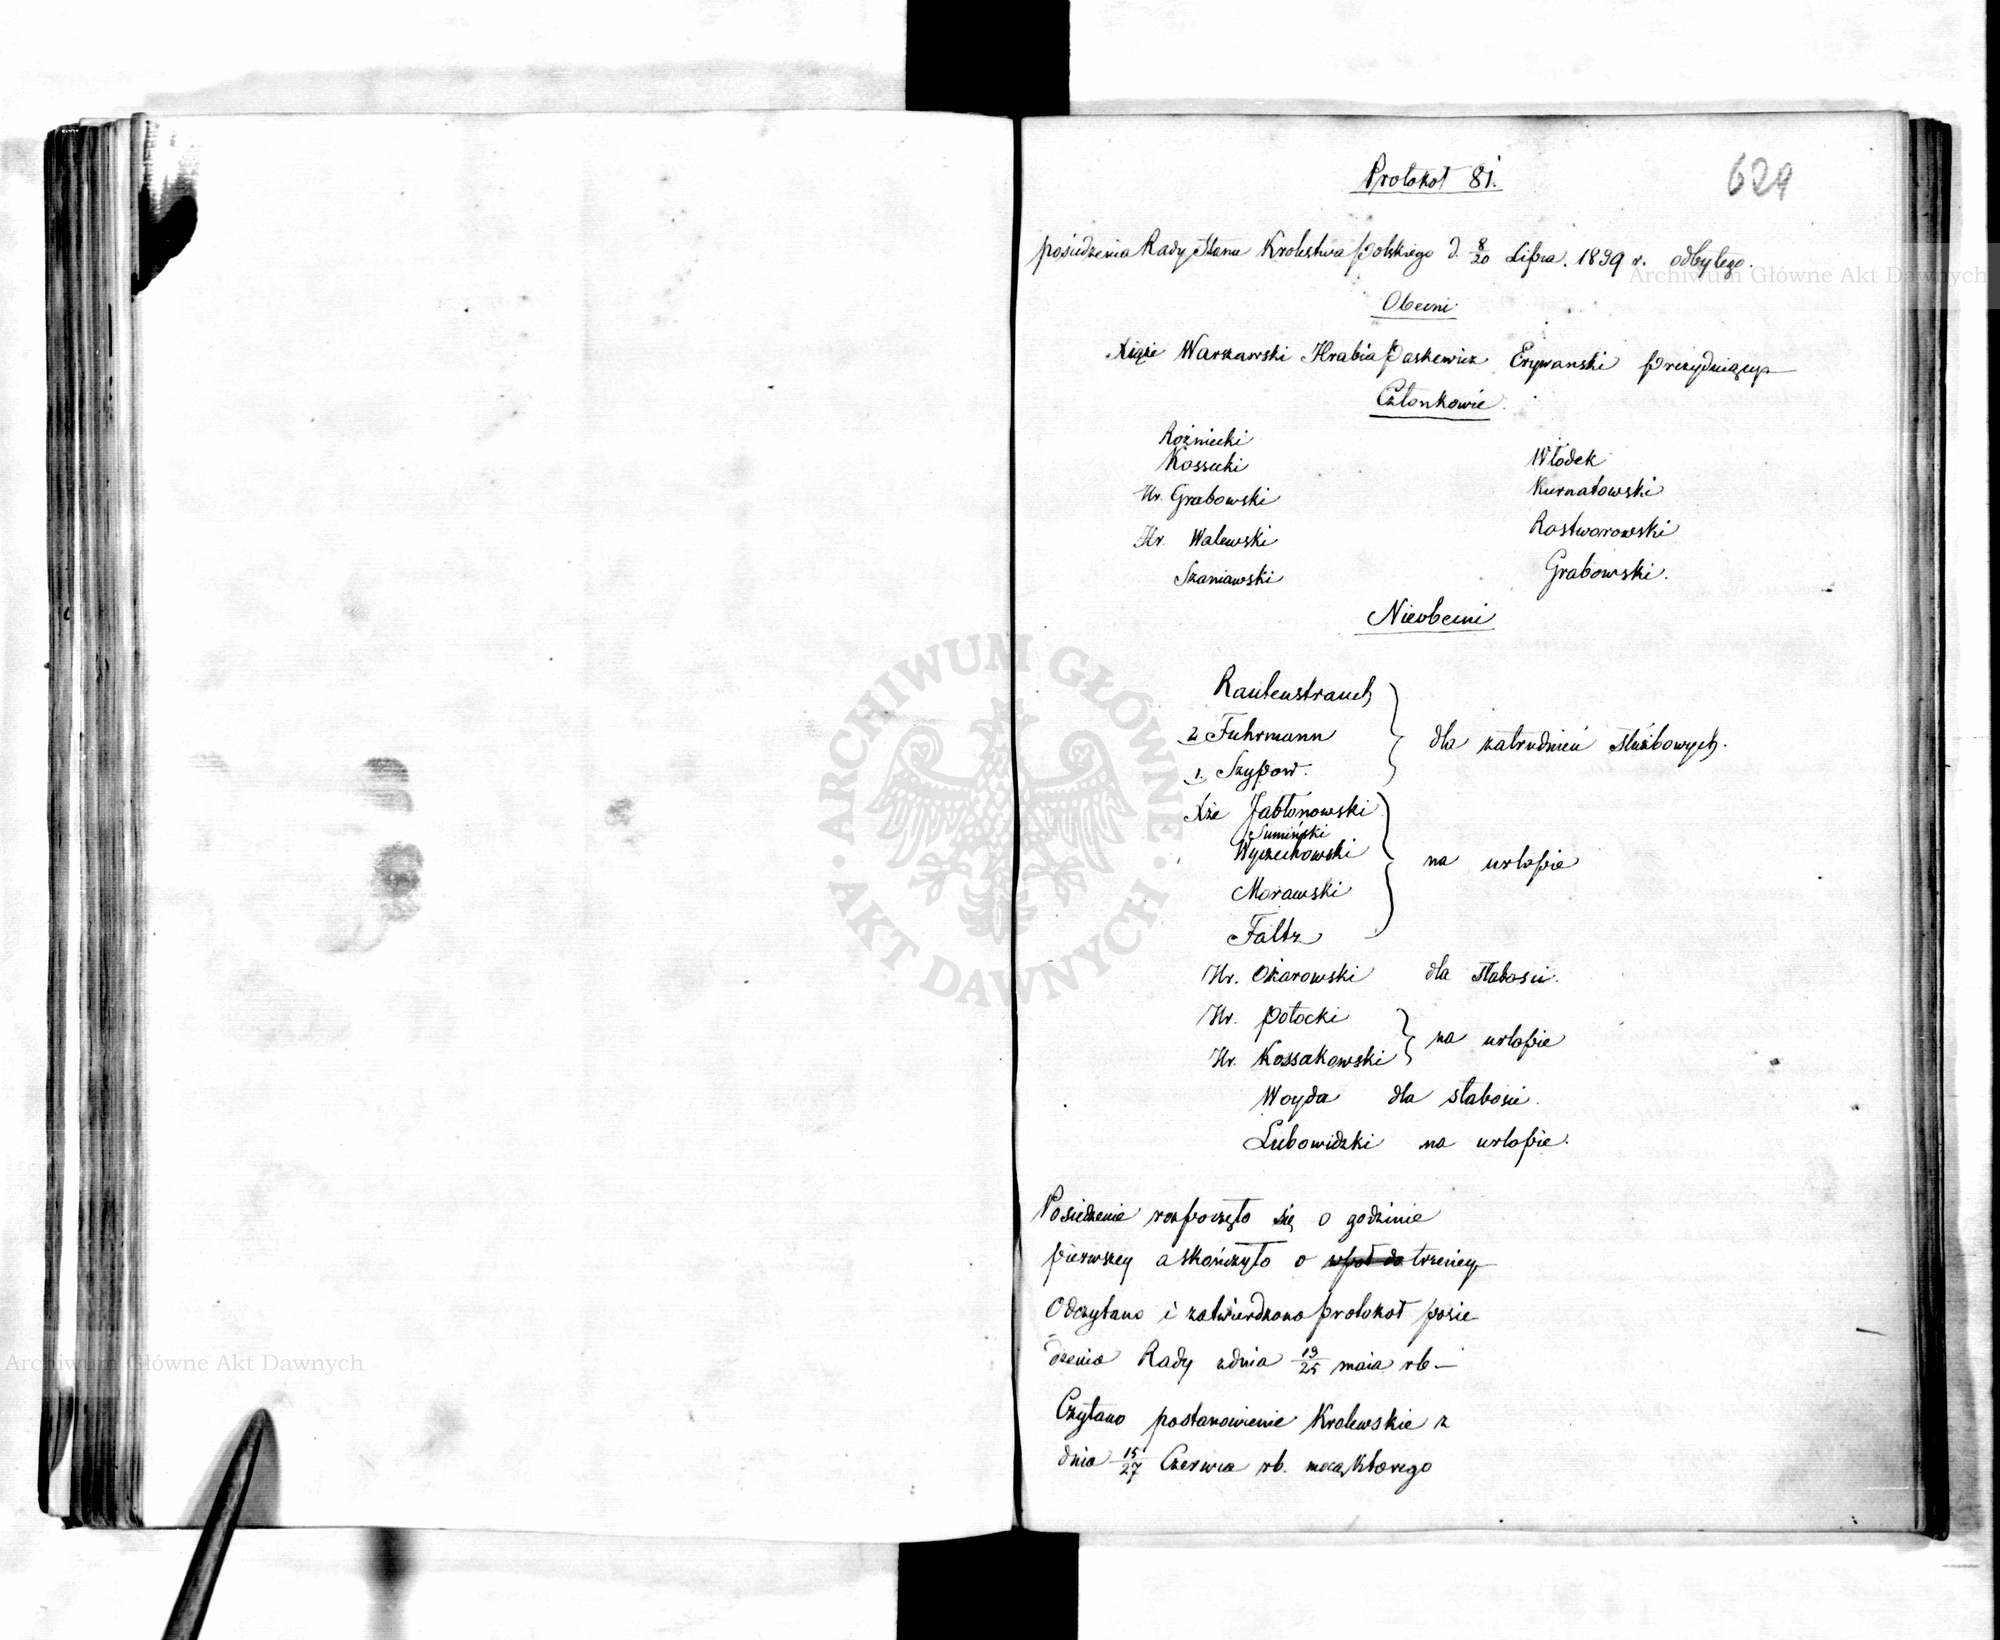 Protokoł 81.
629
posiedzenia Rady Stanu Krolestwa Polskiego d. 8/20 Lipca. 1839 r. odbytego.
Obecni
Xiąże Warszawski Hrabia Paskewicz Erywanski Prezyduiący
Członkowie
Rożniecki
Kossecki
Hr. Grabowski
Hr. Walewski
Szaniawski
Włodek
Kurnatowski
Rostworowski
Grabowski.
Nieobecni
Rautenstrauch
2 Fuhrmann
1. Szypow.
dla zatrudnień służbowych.
Xże Jabłonowski
Sumiński
Wyczechowski
Morawski
Faltz
na urlopie
Hr. Ożarowski dla słabosci.
Hr. Potocki
Hr. Kossakowski
na urlopie
Woyda dla słabosci.
Lubowidzki na urlopie.
Posiedzenie rozpoczęto się o godzinie
pierwszey a skończyło o wpół do trzeciey
Odczytano i zatwierdzono protokoł posie
dzenia Rady zdnia 13/25 maia rb —
Czytano postanowienie Krolewskie z
dnia 15/27 Czerwca rb. mocą ktorego
Archiwum Główne Akt Dawnych
ARCHIWUM GŁÓWNE
· AKT DAWNYCH ·
Archiwum Główne Akt Dawnych